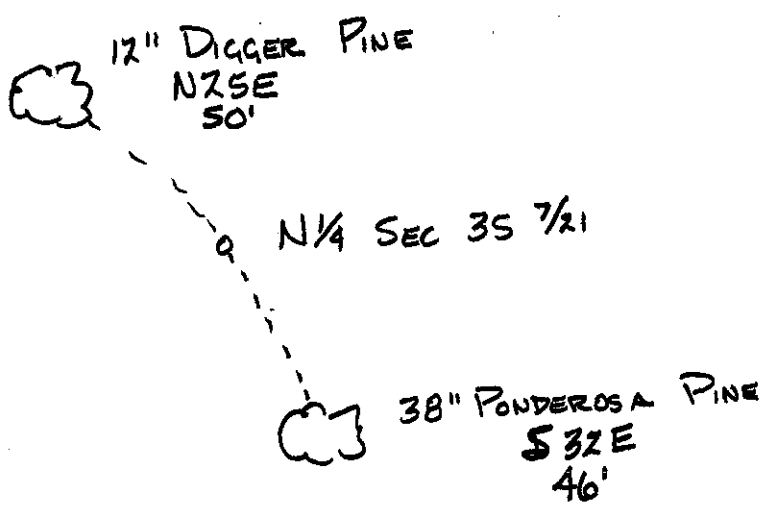 12" DIGGER PINE
N25E
50'
N1/4 SEC 35 7/21
38" PONDEROSA PINE
S32E
46'